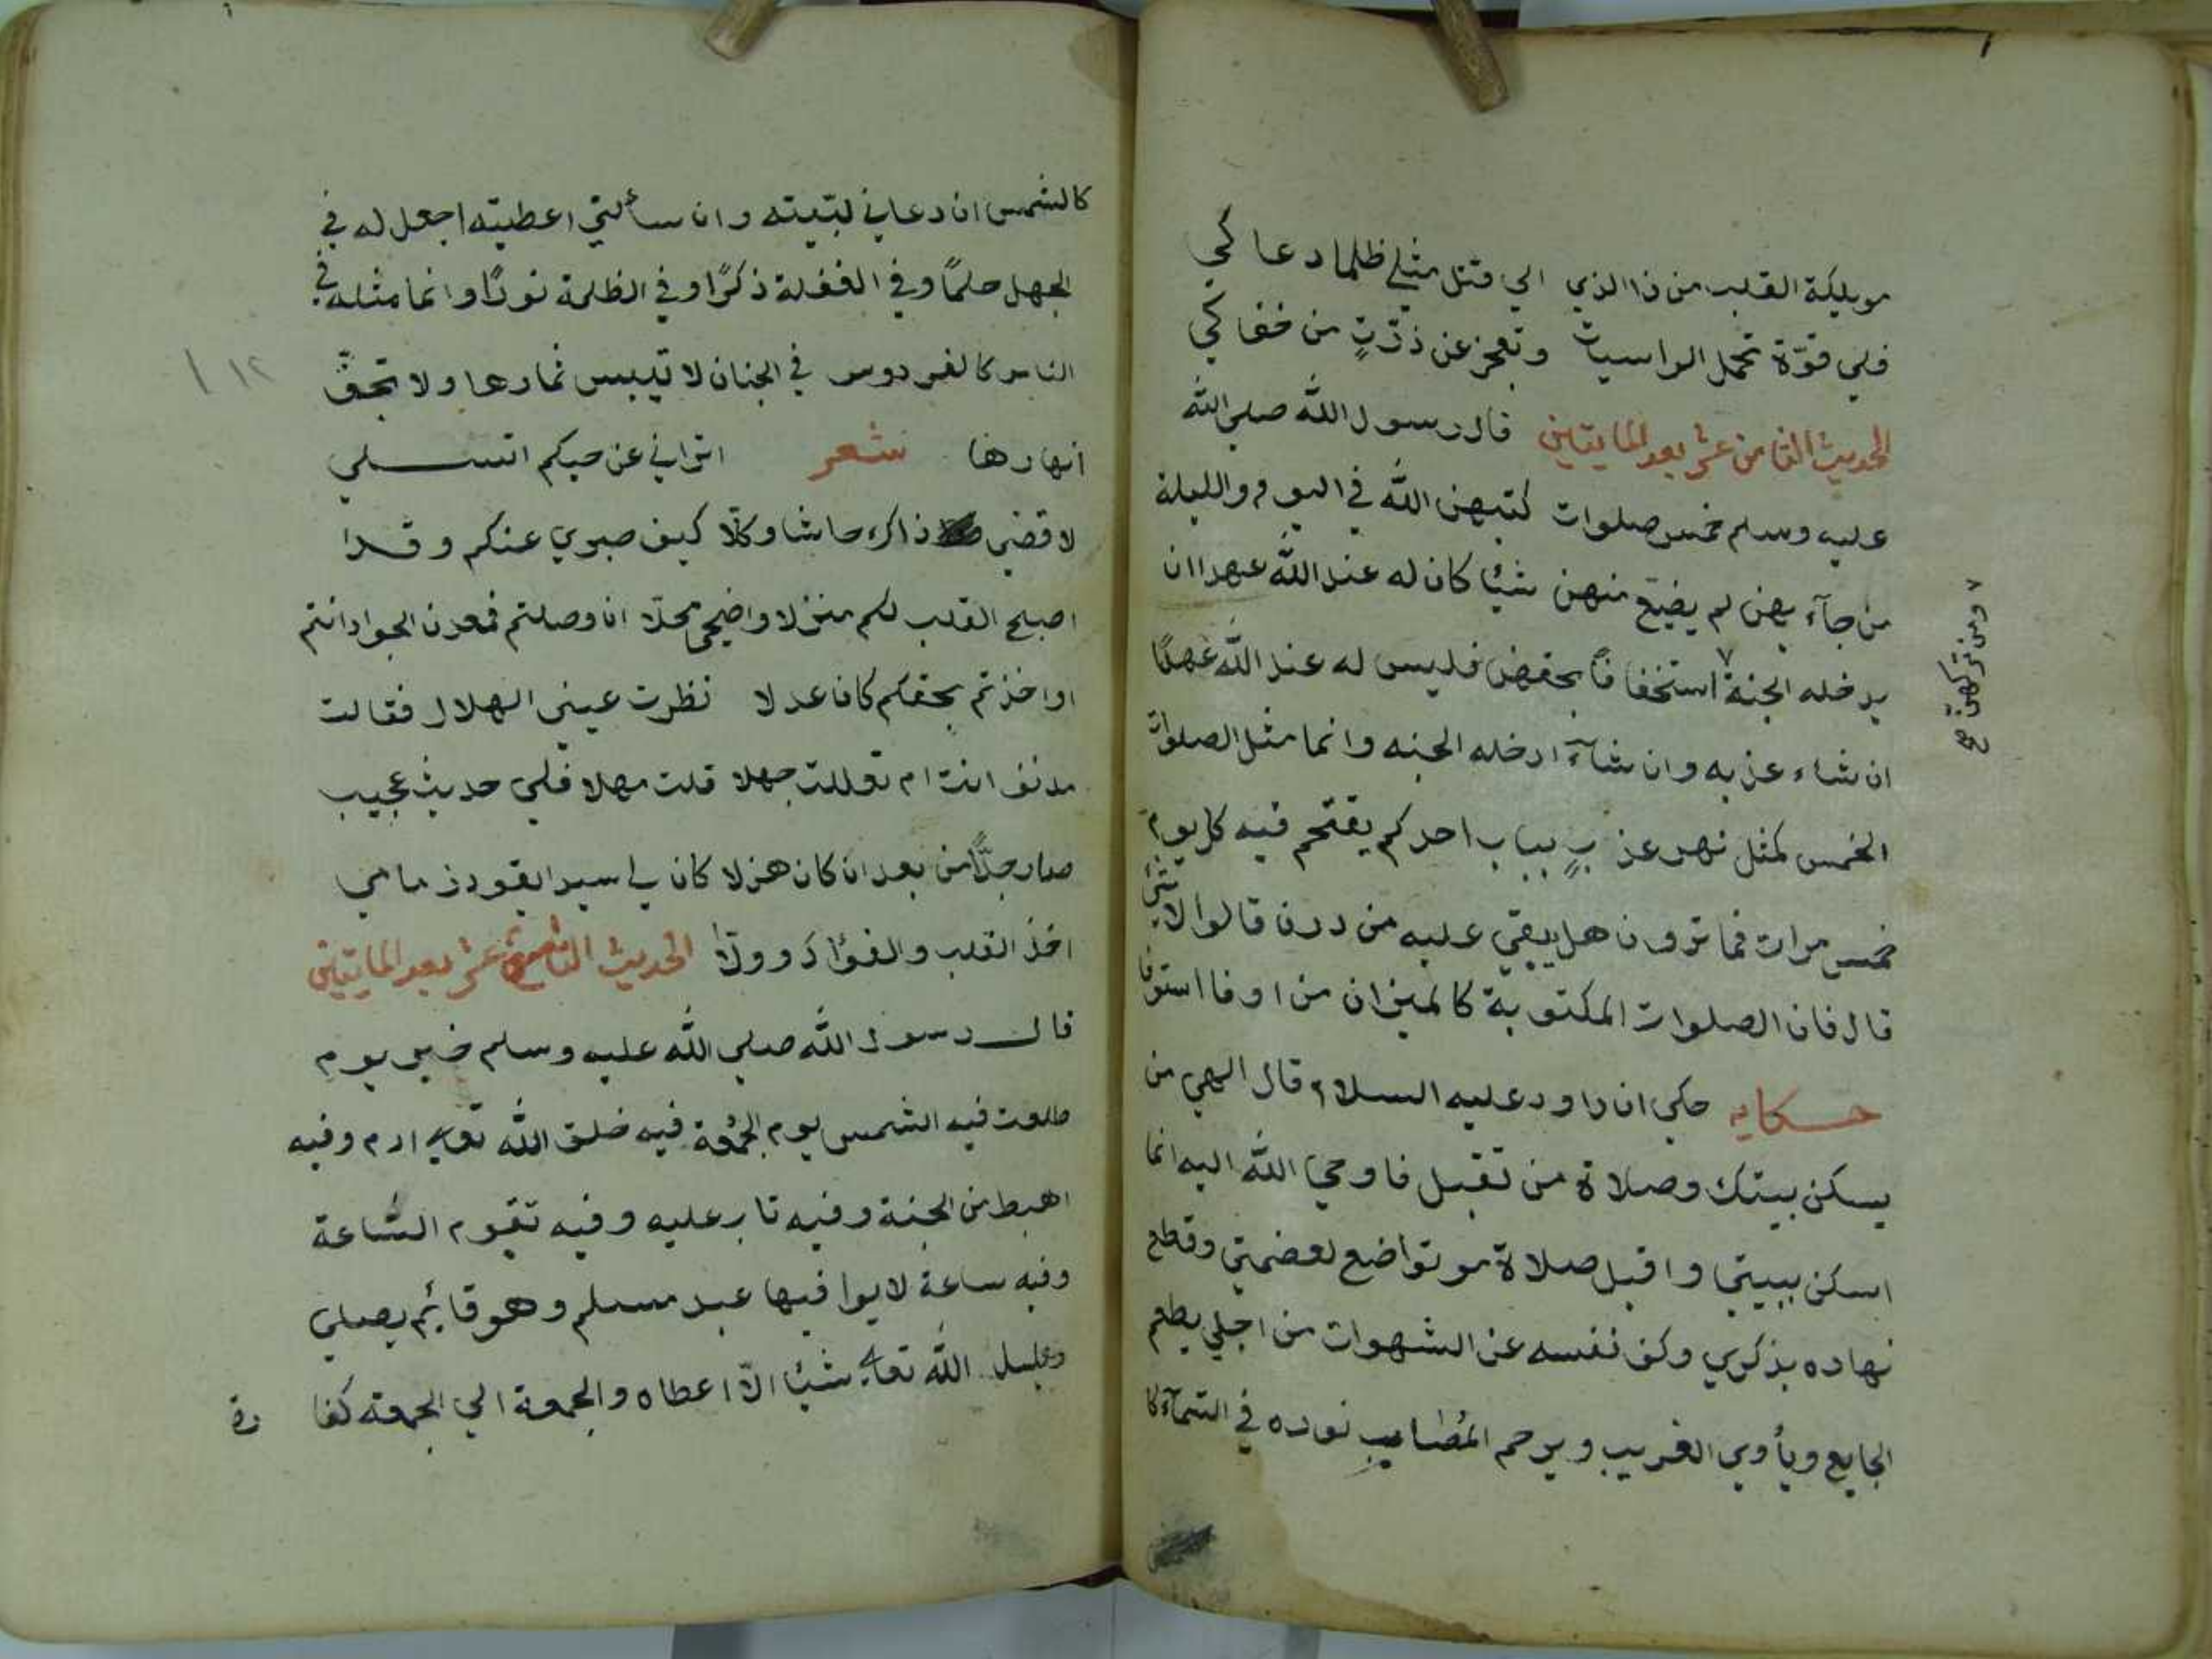 مويلكة القلب من ذا الذي الي قتل مثلي ظلما دعا كي
فلي قوّة تحمل الراسيات وتعجز عن ذرّتٍ من خفا كي
الحديث الثامن عشر بعد المايتين قال رسول الله صلي الله
عليه وسلم خمس صلوات كتبهن الله في اليوم والليلة
من جآء بهن لم يضيّع منهن شيًا كان له عند الله عهدا ان
يدخله الجنة ٧ استخفافًا بحقهن فليس له عند الله عهدًا
٧ ومن تركهن صح
ان شاء عذبه وان شآء ادخله الجنه وانما مثل الصلوات
الخمس كمثل نهر عذبٍ بباب احدكم يقتحم فيه كل يوم
خمس مرات فما ترون هل يبقي عليه من درن قالوا لا شي
قال فان الصلوات المكتوبة كالميزان من اوفا استوفا
حكايه حكي ان داود عليه السلام قال الهي من
يسكن بيتك وصلاة من تقبل فاوحي الله اليه انما
اسكن ببيتي واقبل صلاة مو تواضع لعضمتي وقطع
نهاره بذكري وكف نفسه عن الشهوات من اجلي يطعم
الجايع ويأوي الغريب ويرحم المُصاب نوره في السّمآء كا
كالشمس ان دعاني لبّيته وان سألني اعطيته اجعل له في
الجهل حلمًا وفي الغفلة ذكرًا وفي الظلمة نورًا وانما مثله في
الناس كالفردوس في الجنان لا تيبس ثمارها ولا تجفّ
١٢
انهارها شعر اتراني عن حبكم اتسلي
لا قضي ذاكره حاشا وكلا كيف صبري عنكم وقدا
اصبح القلب لكم منزلا واضحي محلا ان وصلتم فمعدن الجود انتم
او اخذتم بحقكم كان عدلا نظرت عيني الهلال فقالت
مدنف انت ام تعللت جهلا قلت مهلا فلي حديث عجيب
صار جدًّا من بعد ان كان هزلا كان لي اسير القود زمامي
اخذ القلب والفؤاد وولّا الحديث التاسع عشر بعد المايتين
قال رسول الله صلي الله عليه وسلم خير يوم
طلعت فيه الشمس يوم الجمُعة فيه خلق الله تعالي ادم وفيه
اهبط من الجنة وفيه تاب عليه وفيه تقوم السّاعة
وفيه ساعة لا يوا فيها عبد مسلم وهو قائم يصلي
الله تعالي شيًا الّا اعطاه والجمعة الي الجمعة كفا
رة